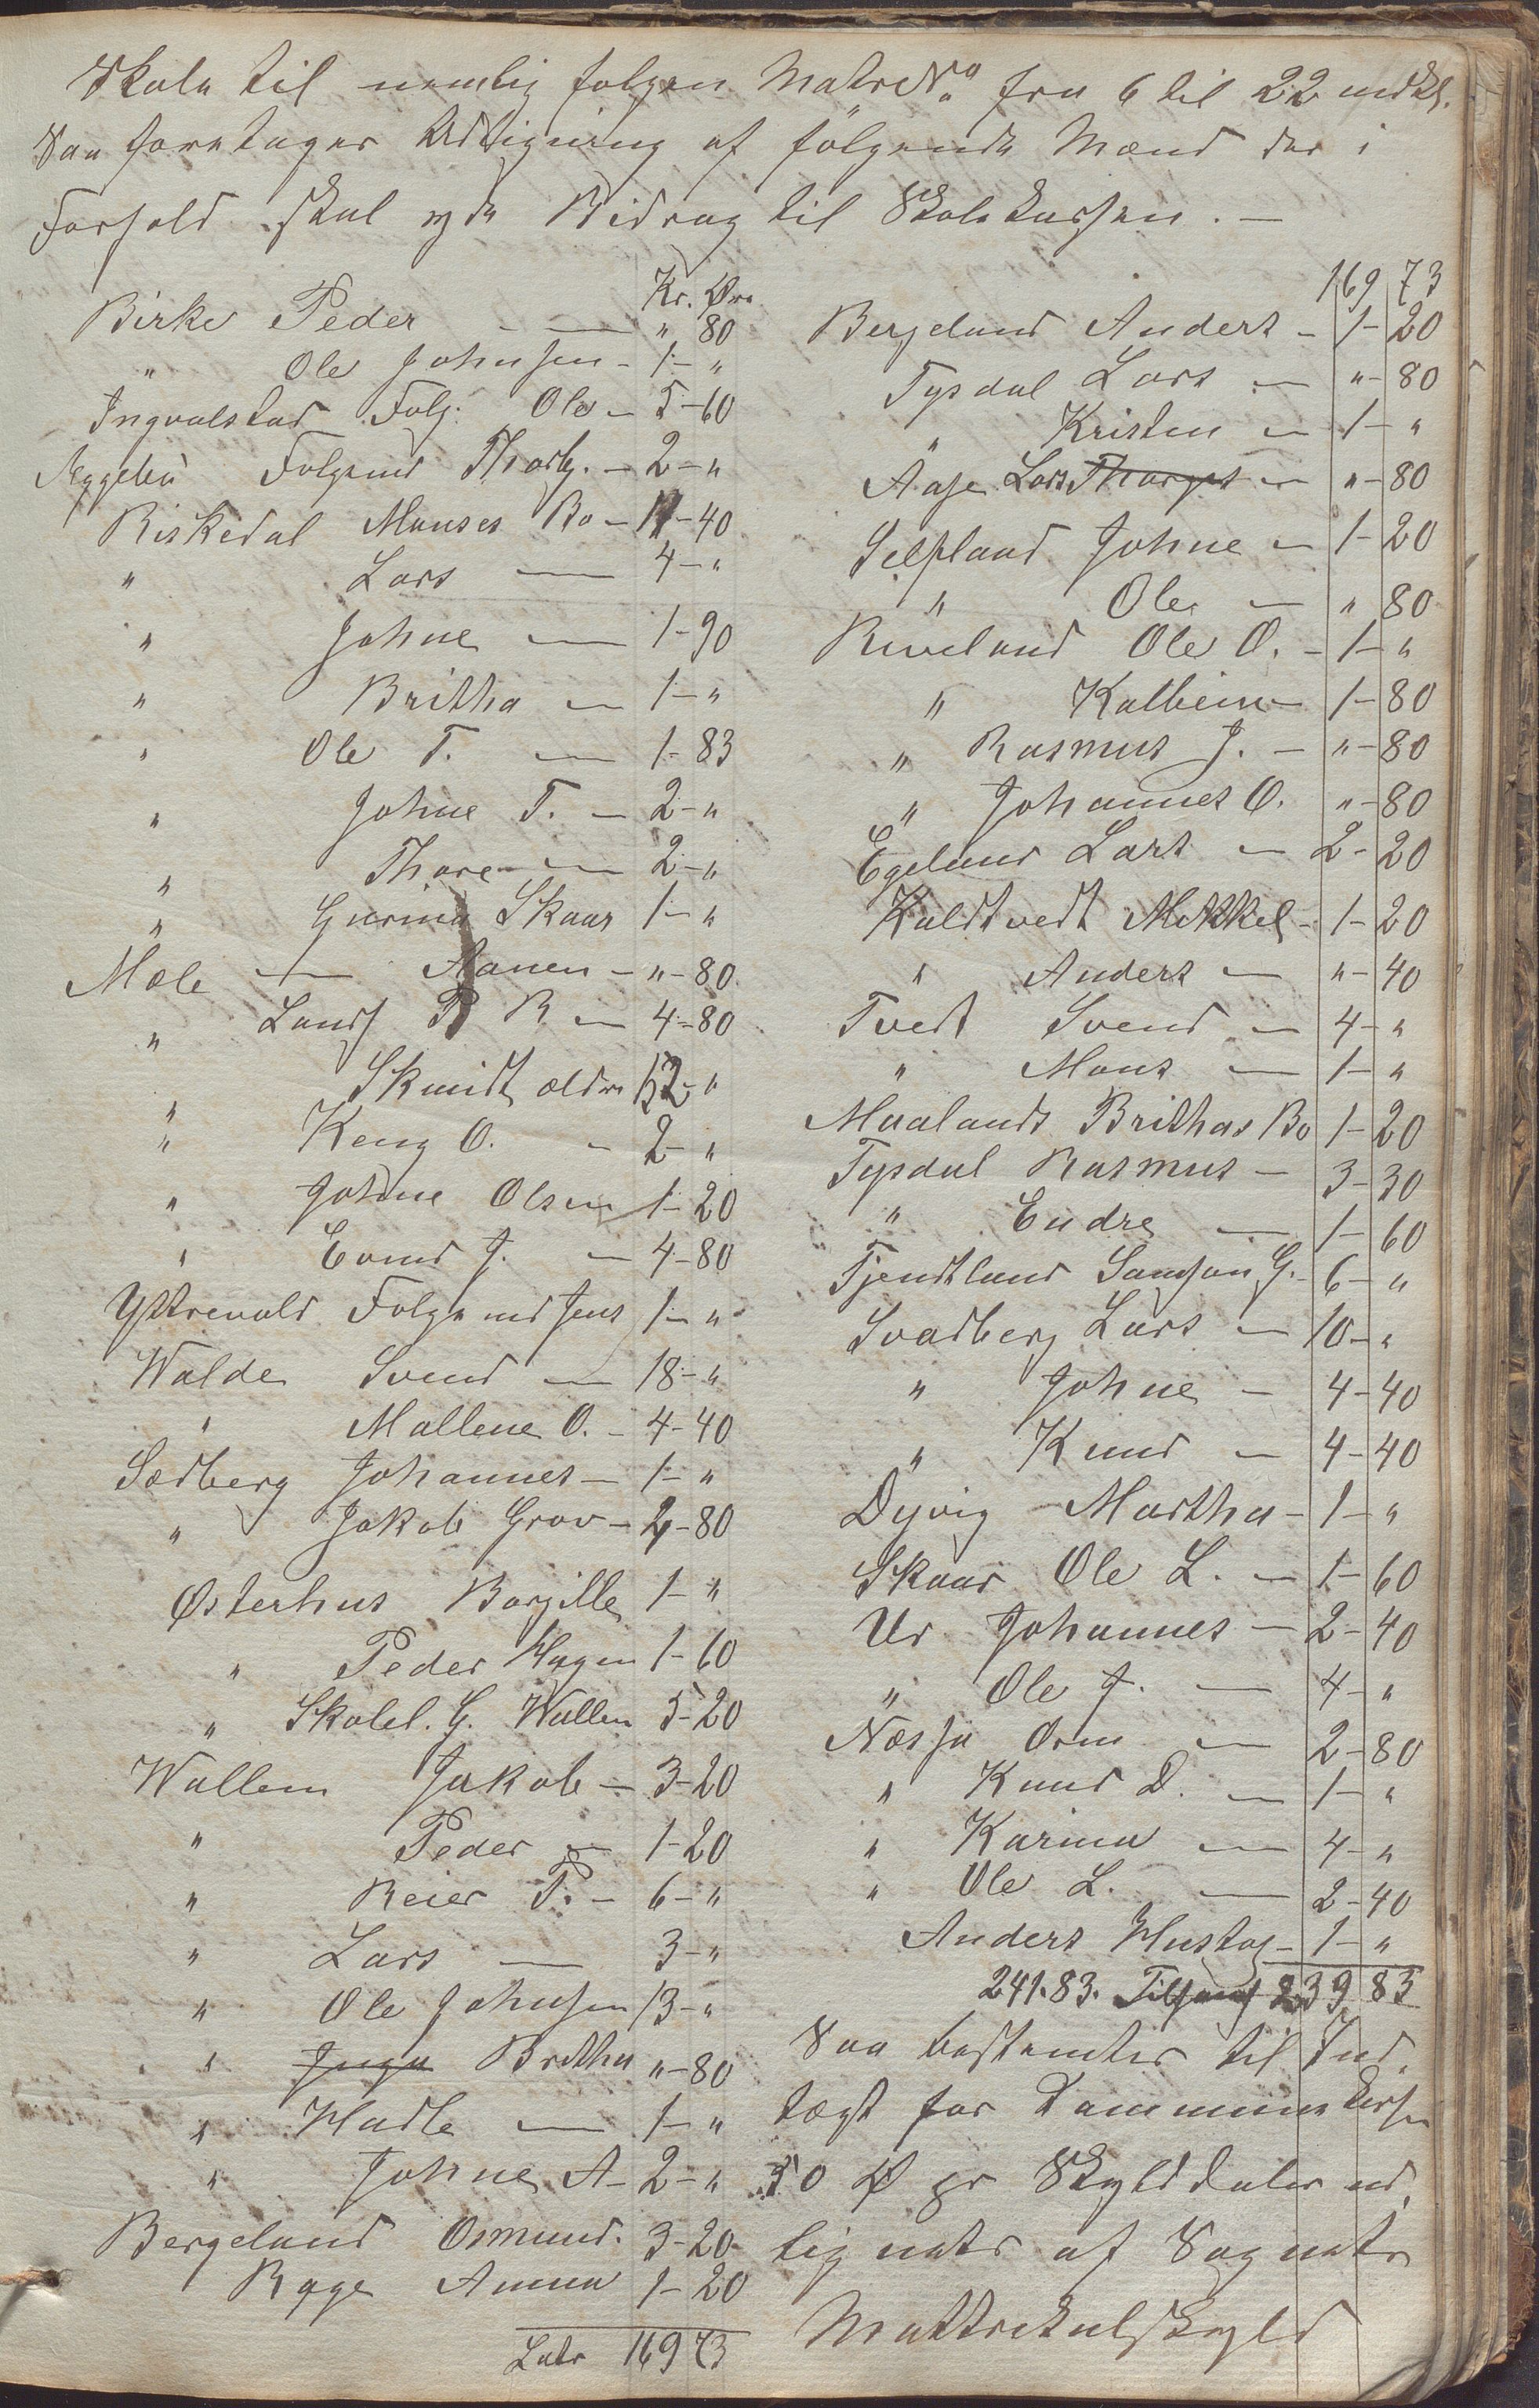 Skole til nemlig følgen MatrN.o fra 6 til 22 indkl.
Saa foretages Udligning af følgende Mænd der i
Forhold skal yde Bidrag til Skolekassen. —
Kr. Øre
Birke Peder — — " 80
" Ole Johnsen - 1- "
Ingvalstad Folg. Ole - 5-60
Æggebø Folgemd Thorb. - 2- "
Riskedal Monses Bo - 11-40
" Lars — 4- "
" Johne — 1-90
" Britha — 1- "
" Ole T. — 1-83
" Johne T. - 2- "
" Thore — 2- "
" Gurina Skaar 1- "
Mæle — Aanen - "-80
" Landh P R — 4-80
" Skmidt ældre 12- "
" Keng O. - 2- "
" Johne Olsen 1-20
" Evind J. — 4-80
Yttrevold Folgemd Jens 1- "
Walde Svend — 18- "
" Mallene O. - 4-40
Sædberg Johannes - 1- "
" Jakob Grov - 2-80
Østerhus Borgille 1- "
" Peder Hagen 1-60
" Skolel. G. Wallen 5-20
Wallem Jakob - 3-20
" Peder — 1-20
" Reier P. - 6- "
" Lars — 3- "
" Ole Johnsen 13- "
" Inga Britha "-80
" Hadle — 1- "
" Johne A - 2- "
Bergeland Osmund. 3-20
Rage Anna 1-20
Latr 169 73
169 73
Bergeland Anders - 1-20
Tysdal Lars — "-80
" Kristen — 1- "
Aase Lars Thorges — "-80
Selfland Johne — 1-20
" Ole — " 80
Riveland Ole O. - 1- "
" Kalbein - 1-80
" Rasmus J. — "-80
" Johannes O. "-80
Egeland Lars — 2-20
Kaldtvedt Mikkel - 1-20
" Anders — "-40
Tvedt Svend — 4- "
" Mons — 1- "
Maalands Brithas Bo 1-20
Tysdal Rasmus — 3-30
" Endre — 1-60
Tjendtland Samson G. - 6- "
Svadberg Lars — 10- "
" Johne — 4-40
" Knud — 4-40
Dyvig Martha - 1- "
Skaar Ole L. — 1-60
Ur Johannes — 2-40
" Ole J. — 4- "
Næssa Orm — 2-80
" Knud D. — 1- "
" Karina — 4- "
" Ole L. — 2-40
Anders Hustog - 1- "
241.83. Tilsam 239 83
Saa bestemtes til Ind,
tægt for Kommunekassen
50 Ø pr Skylddaler ud,
lignets af Sognets
Mattrekulskyld